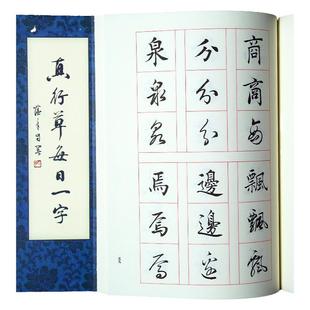 真行草每日一字
商分泉
商分泉
商分泉
飄邊焉
飄邊焉
飄邊焉